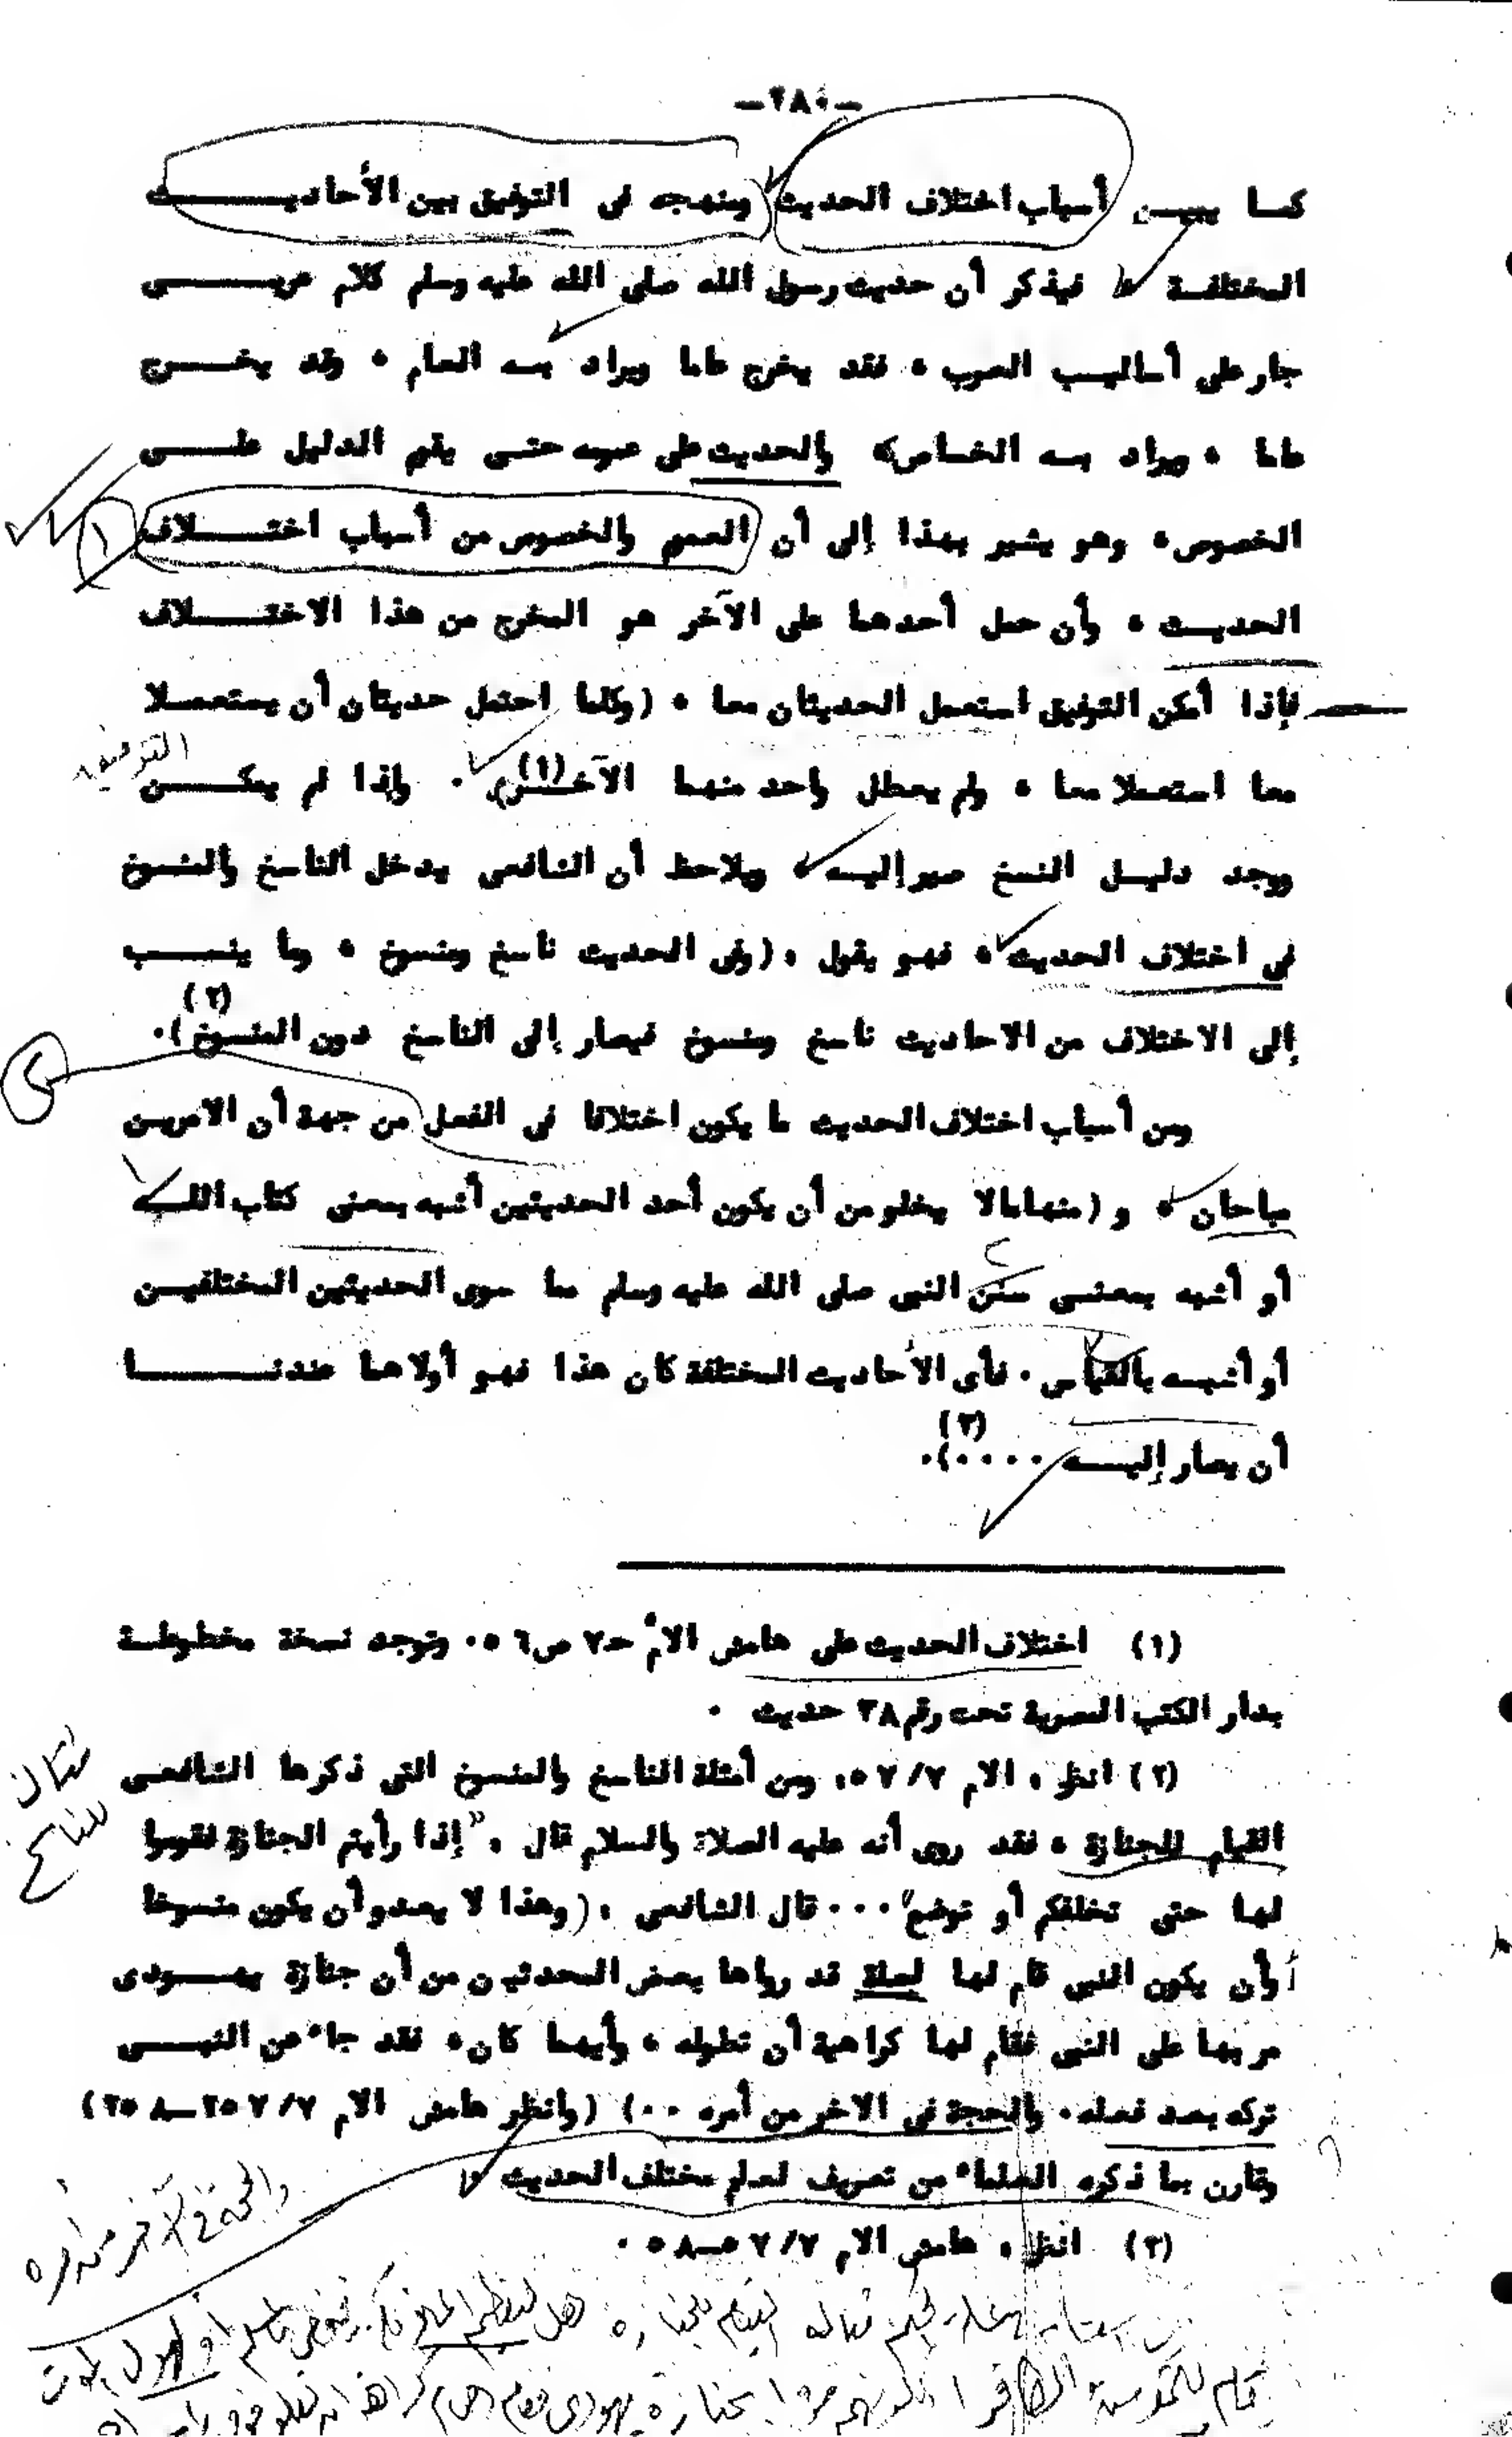 -٢٨٠-
كما يبين أسباب اختلاف الحديث ومنهجه فى التوفيق بين الأحاديث
المختلفة ، فيذكر أن حديث رسول الله صلى الله عليه وسلم كلام عربى
جار على أساليب العرب ، فقد يخرج عاما ويراد به العام ، وقد يخرج
عاما ، ويراد به الخاص ، والحديث على عمومه حتى يقوم الدليل على
الخصوص ، وهو يشير بهذا إلى أن العموم والخصوص من أسباب اختلاف
١
الحديث ، وأن حمل أحدهما على الآخر هو المخرج من هذا الاختلاف
فإذا أمكن التوفيق استعمل الحديثان معا ، (وكلما احتمل حديثان أن يستعملا
التوفيق
معا استعملا معا ، ولم يعطل واحد منهما الآخر)(١) . وإذا لم يمكن
ووجد دليل النسخ صير إليه ، ويلاحظ أن الشافعى يدخل الناسخ والمنسوخ
فى اختلاف الحديث ، فهو يقول ، (وفى الحديث ناسخ ومنسوخ ، وما ينسب
إلى الاختلاف من الاحاديث ناسخ ومنسوخ فيصار إلى الناسخ دون المنسوخ)(٢).
٢
ومن أسباب اختلاف الحديث ما يكون اختلافا فى الفعل من جهة أن الامرين
مباحان ، و (منها مالا يخلو من أن يكون أحد الحديثين أشبه بمعنى كتاب الله
أو أشبه بمعنى سنن النبى صلى الله عليه وسلم مما سوى الحديثين المختلفين
أو أشبه بالقياس . فأى الأحاديث المختلفة كان هذا فهو أولاها عندنا
أن يصار إليه ....)(٣).
(١) اختلاف الحديث على هامش الأم ح٧ ص٥٦ . وتوجد نسخة مخطوطة
بدار الكتب المصرية تحت رقم ٣٨ حديث .
(٢) انظر ، الام ٥٧/٧ ، ومن أمثلة الناسخ والمنسوخ التى ذكرها الشافعى
القيام للجنازة ، فقد روى أنه عليه الصلاة والسلام قال ، "إذا رأيتم الجنازة فقوموا
لها حتى تخلفكم أو توضع" ... قال الشافعى ، (وهذا لا يعدو أن يكون منسوخا
أوأن يكون النبى قام لها لعلة قد رواها بعض المحدثين من أن جنازة يهودى
مر بها على النبى فقام لها كراهية أن تطوله ، وأيهما كان ، فقد جاء عن النبى
تركه بعد فعله . والحجة فى الاخر من أمره ..) (وانظر هامش الام ٢٥٧/٧-٢٥٨)
وقارن بما ذكره العلماء من تعريف لعلم مختلف الحديث ،
(٣) انظر ، هامش الام ٥٧/٧-٥٨ .
مثال
للناسخ
والحجة في الآخر من أمره